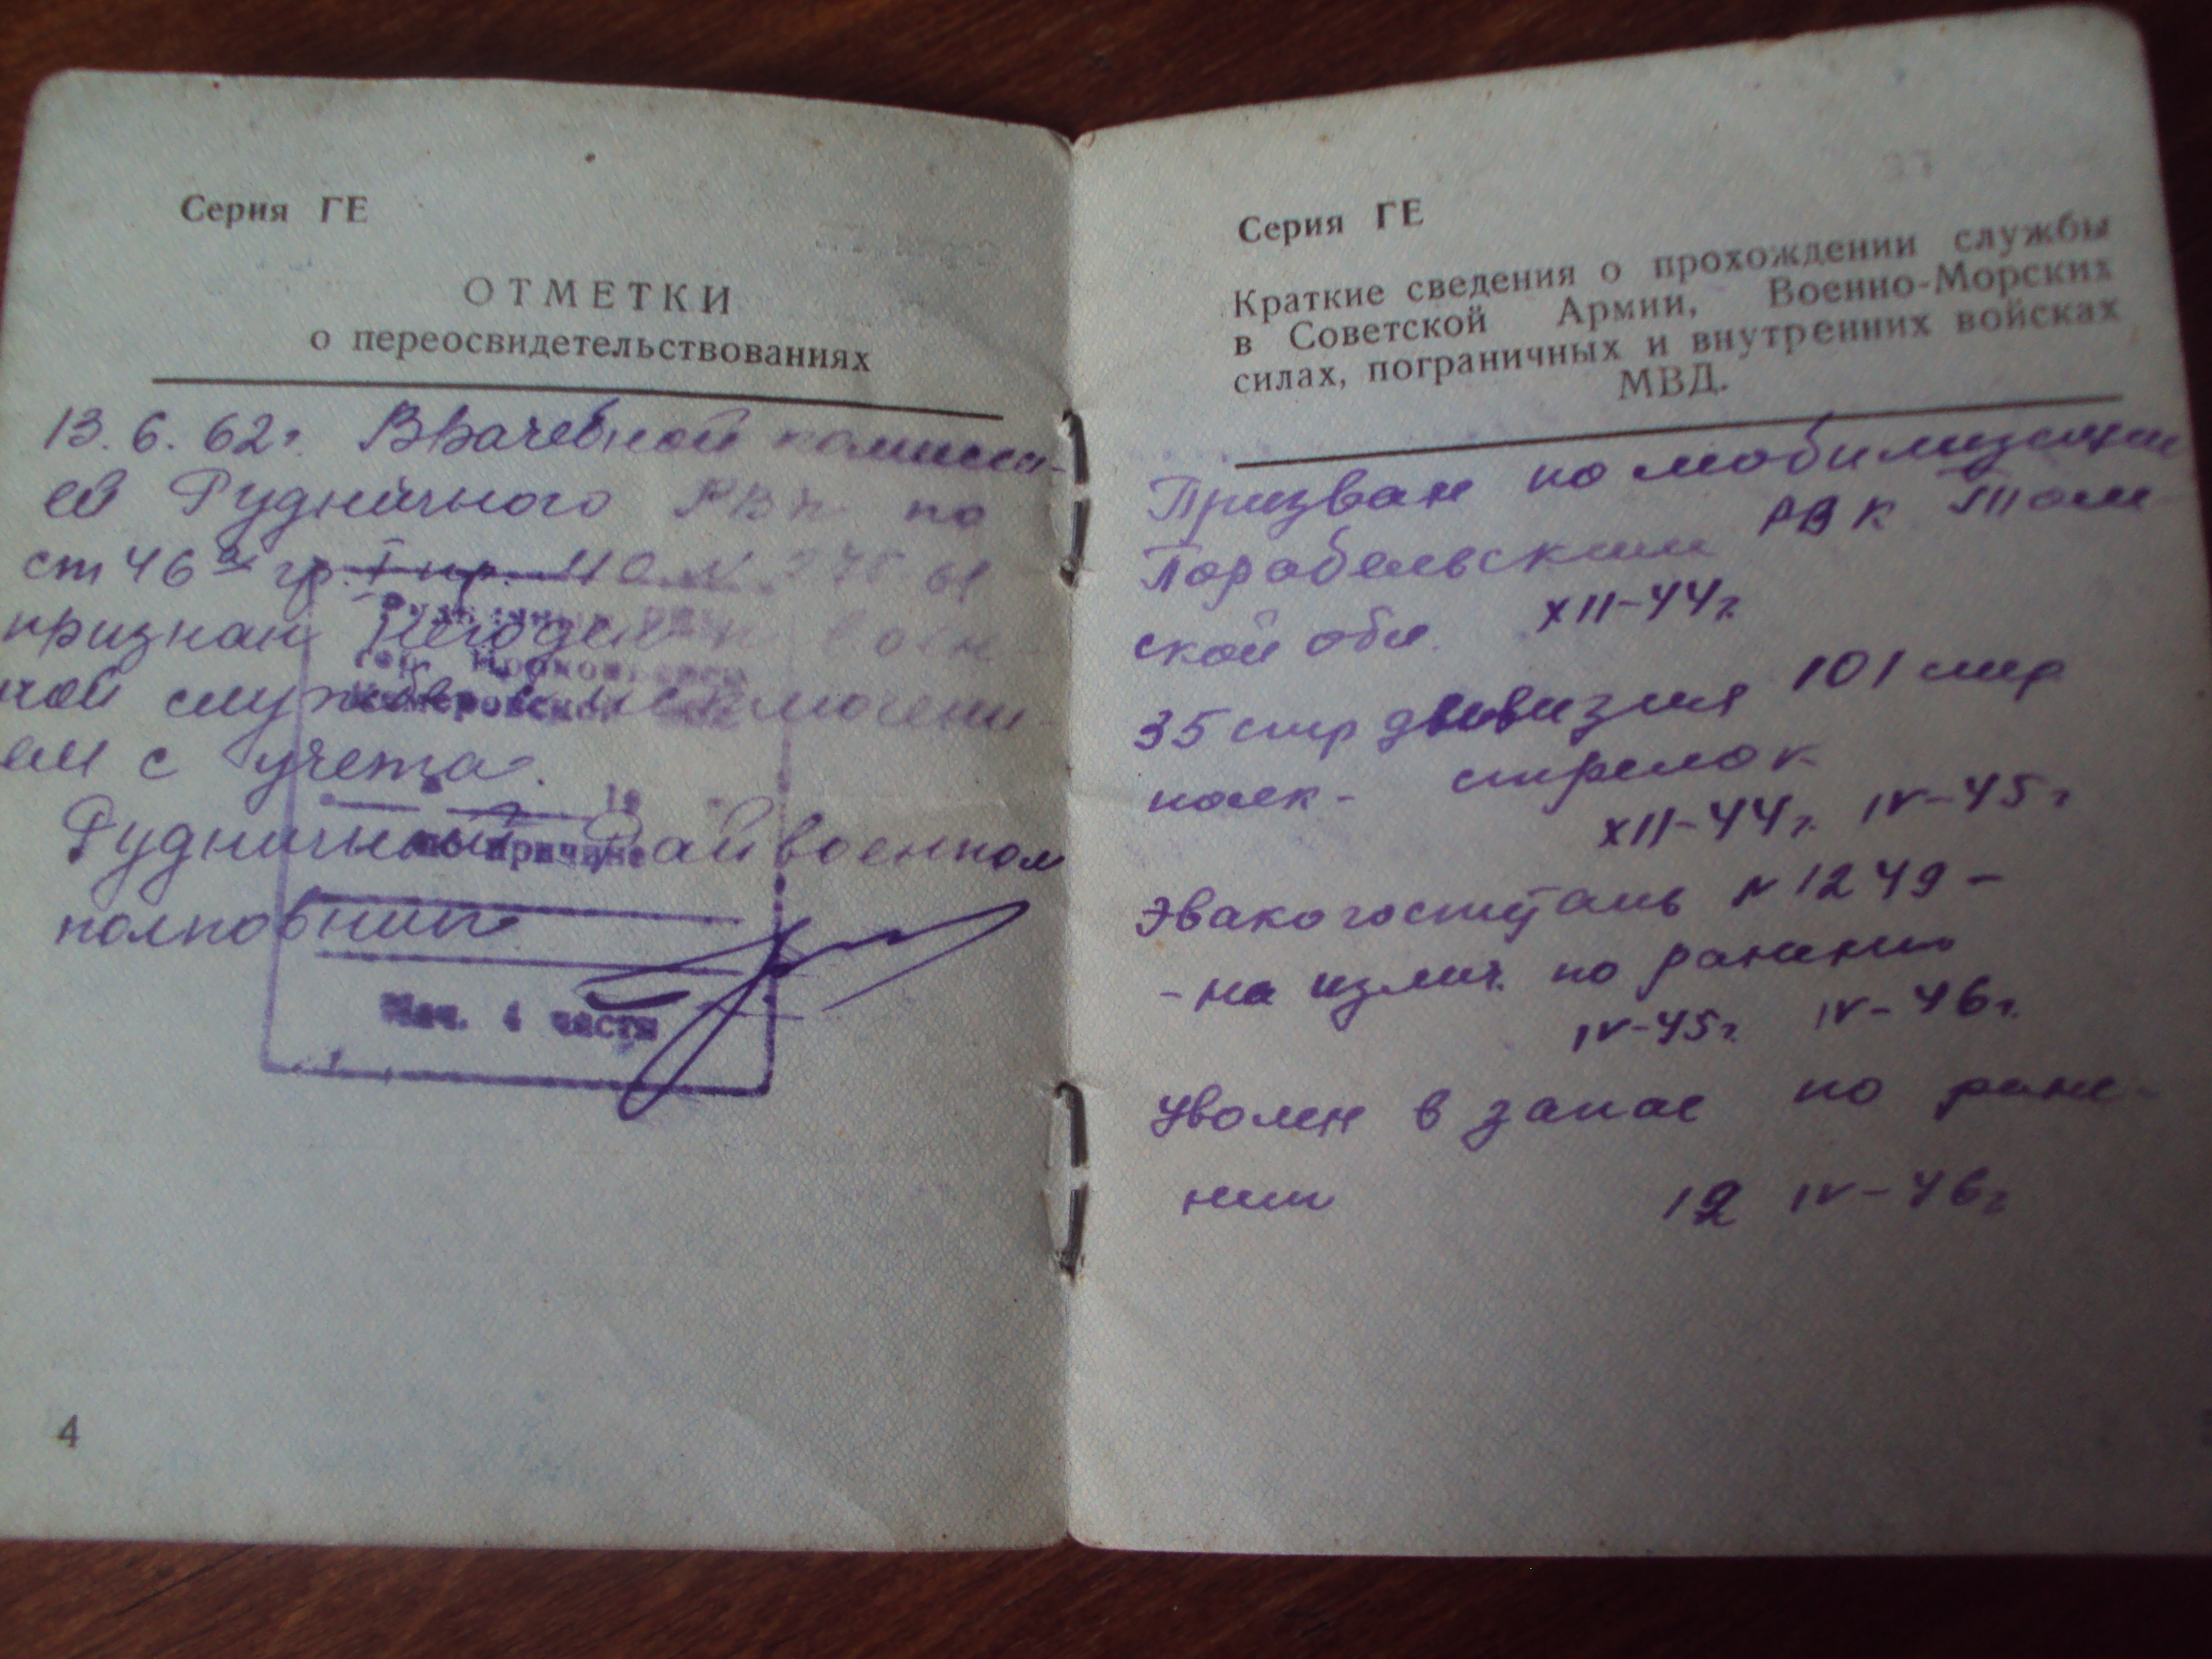 Серия ГЕ
ОТМЕТКИ
о переосвидетельствованиях
13.6.62г. Врачебной комисси-
ей Рудничного РВК по
ст 46 гр. I пр. МО №
признан негоден к воен-
ной службе с исключени-
ем с учета.
Рудничный Райвоенком
полковник
гор. Прокопьевск
Кемеровской
19
по причине
Нач. 4 части
4
Серия ГЕ
Краткие сведения о прохождении службы
в Советской Армии, Военно-Морских
силах, пограничных и внутренних войсках
МВД.
Призван по мобилизации
Парабельским РВК Том-
ской обл. XII-44г.
35 стр дивизия 101 стр
полк - стрелок
XII-44г. IV-45г
Эвакогоспиталь №1249 -
- на излеч. по ранению
IV-45г. IV-46г.
Уволен в запас по ране-
нии 12 IV-46г